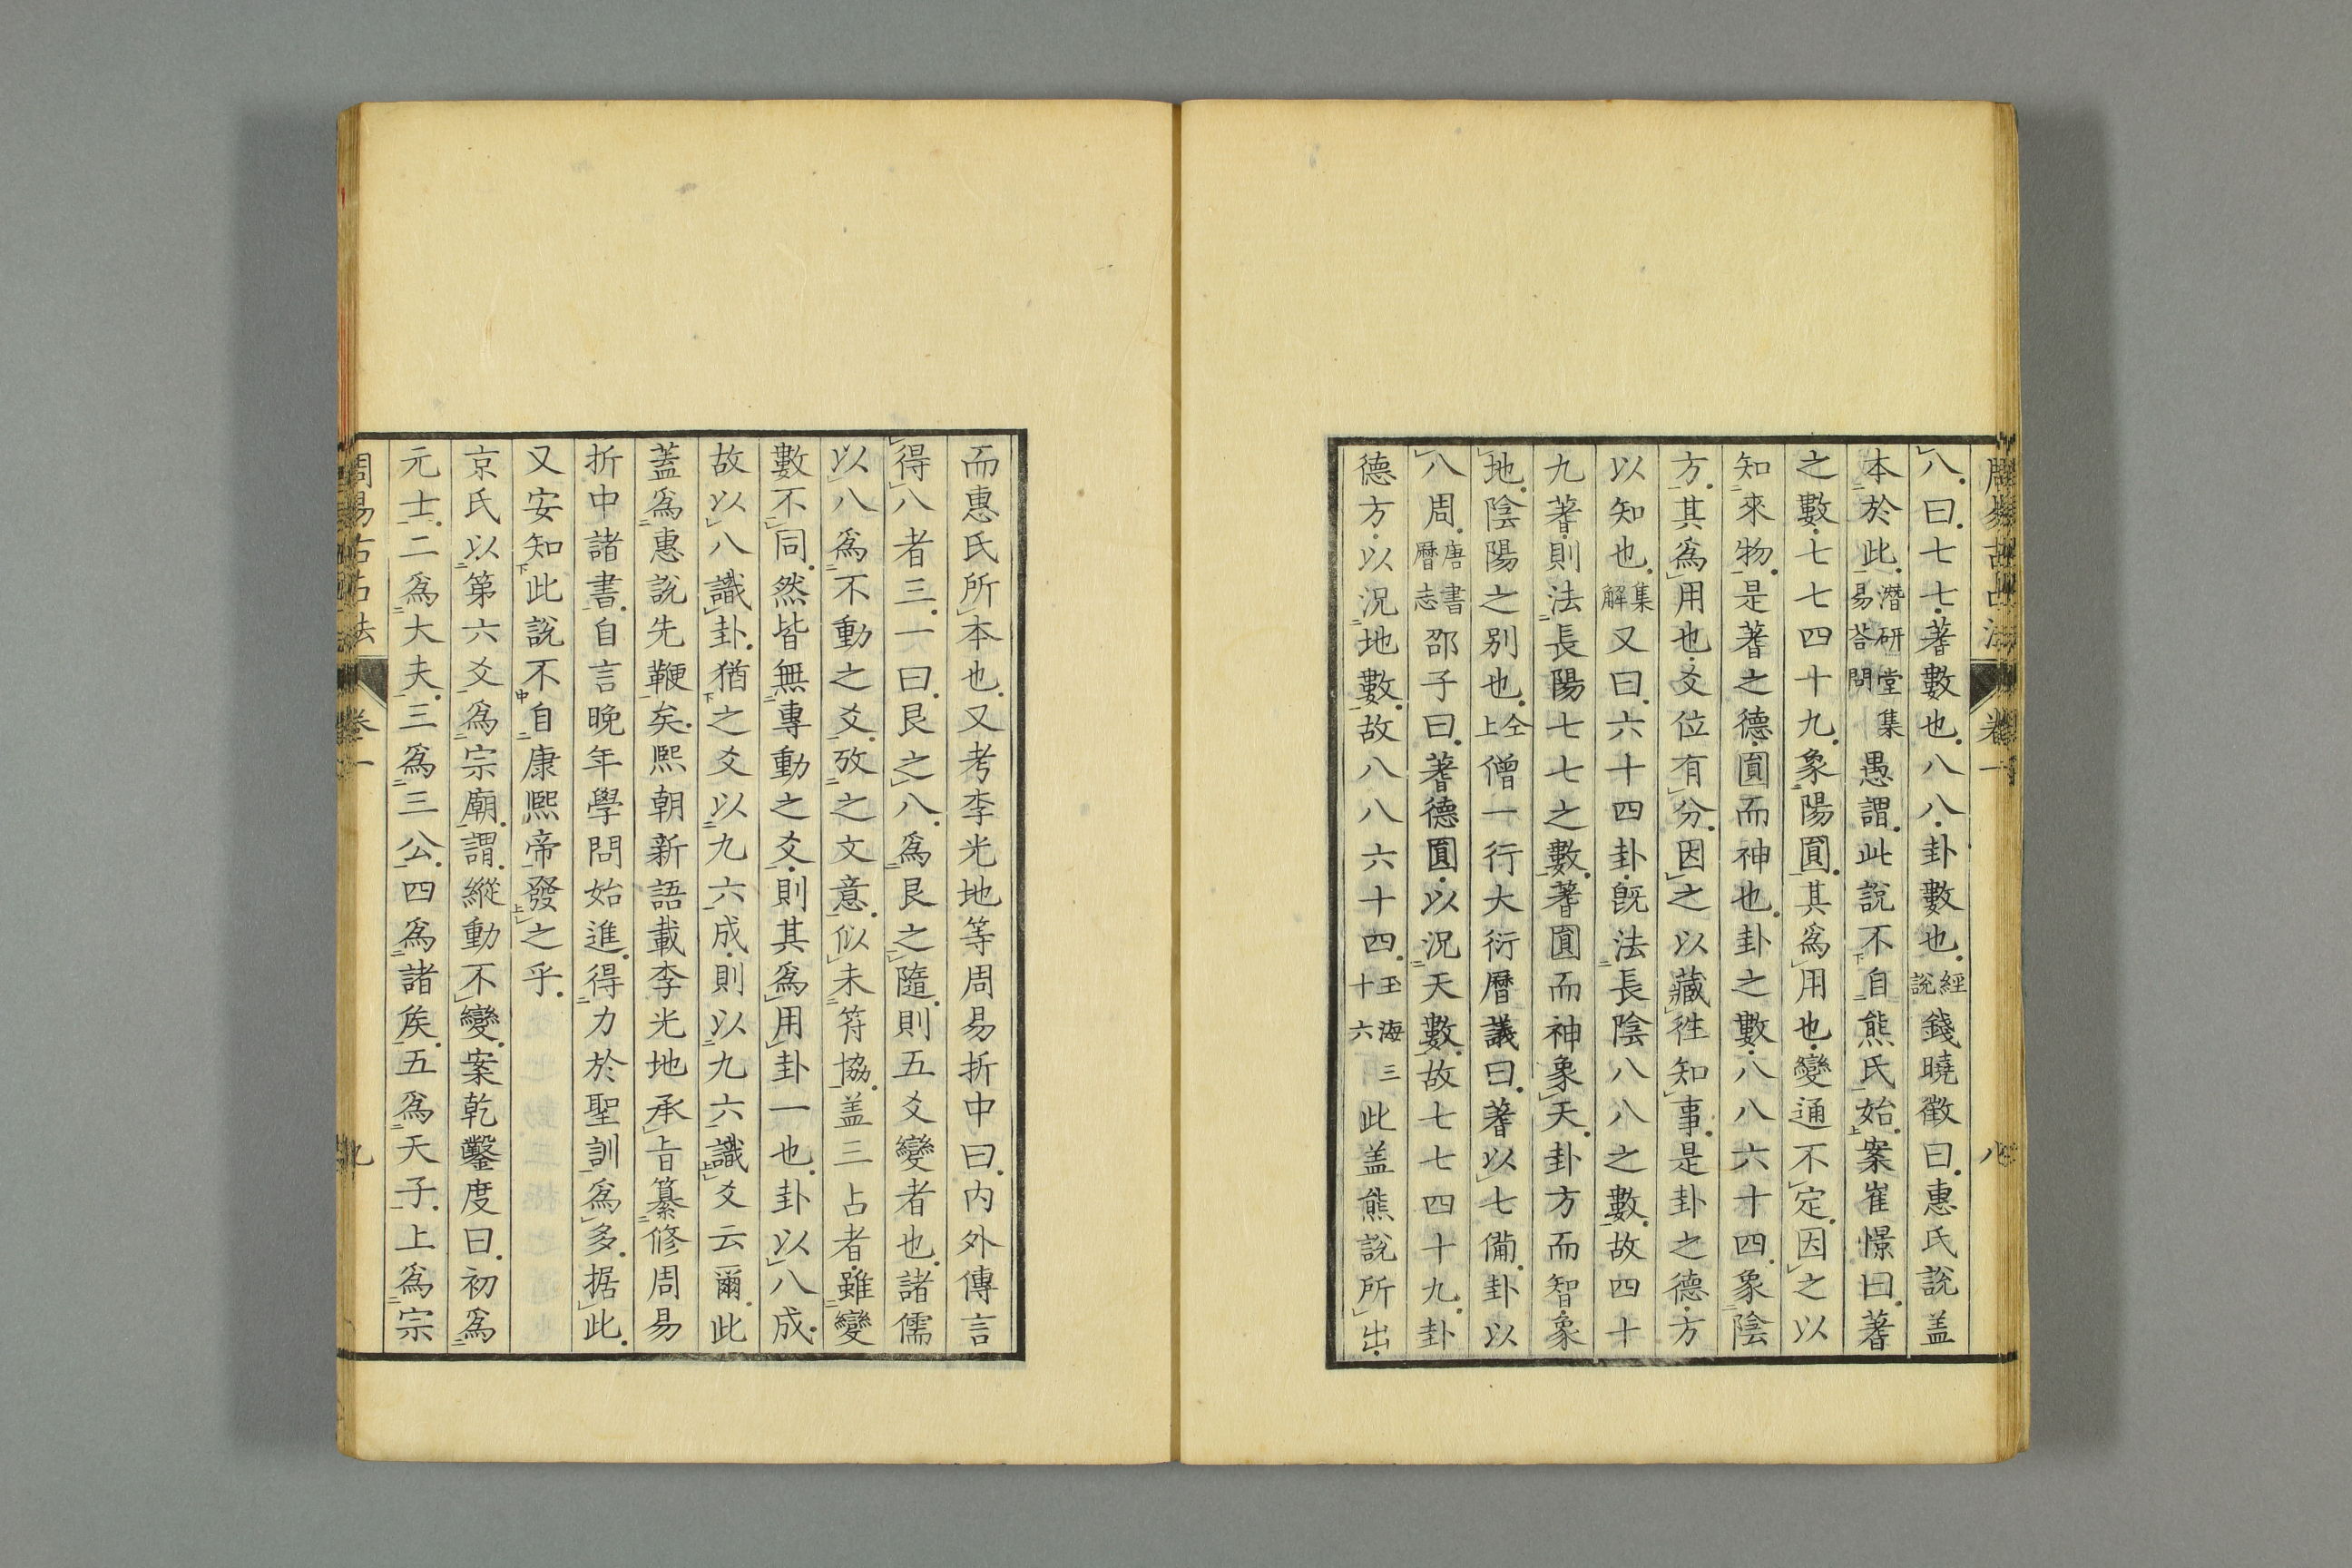 周易古占法 卷一 八
八曰七七蓍數也八八卦數也經說錢曉徵曰惠氏說盖
本於此潛研堂集易荅問愚謂此說不自熊氏始案崔憬曰蓍
之數七七四十九象陽圓其爲用也變通不定因之以
知來物是蓍之德圓而神也卦之數八八六十四象陰
方其爲用也爻位有分因之以藏徃知事是卦之德方
以知也集解又曰六十四卦旣法長陰八八之數故四十
九蓍則法長陽七七之數蓍圓而神象天卦方而智象
地陰陽之别也仝上僧一行大衍曆議曰蓍以七備卦以
八周唐書曆志邵子曰蓍德圓以況天數故七七四十九卦
德方以況地數故八八六十四玉海三十六此盖熊說所出
而惠氏所本也又考李光地等周易折中曰内外傳言
得八者三一曰艮之八爲艮之隨則五爻變者也諸儒
以八爲不動之爻攷之文意似未符協盖三占者雖變
數不同然皆無專動之爻則其爲用卦一也卦以八成
故以八識卦猶之爻以九六成則以九六識爻云爾此
蓋爲惠說先鞭矣熙朝新語載李光地承旨纂修周易
折中諸書自言晚年學問始進得力於聖訓爲多据此
又安知此說不自康熙帝發之乎
京氏以第六爻爲宗廟謂縱動不變案乾鑿度曰初爲
元士二爲大夫三爲三公四爲諸矦五爲天子上爲宗
周易古占法 卷一 九